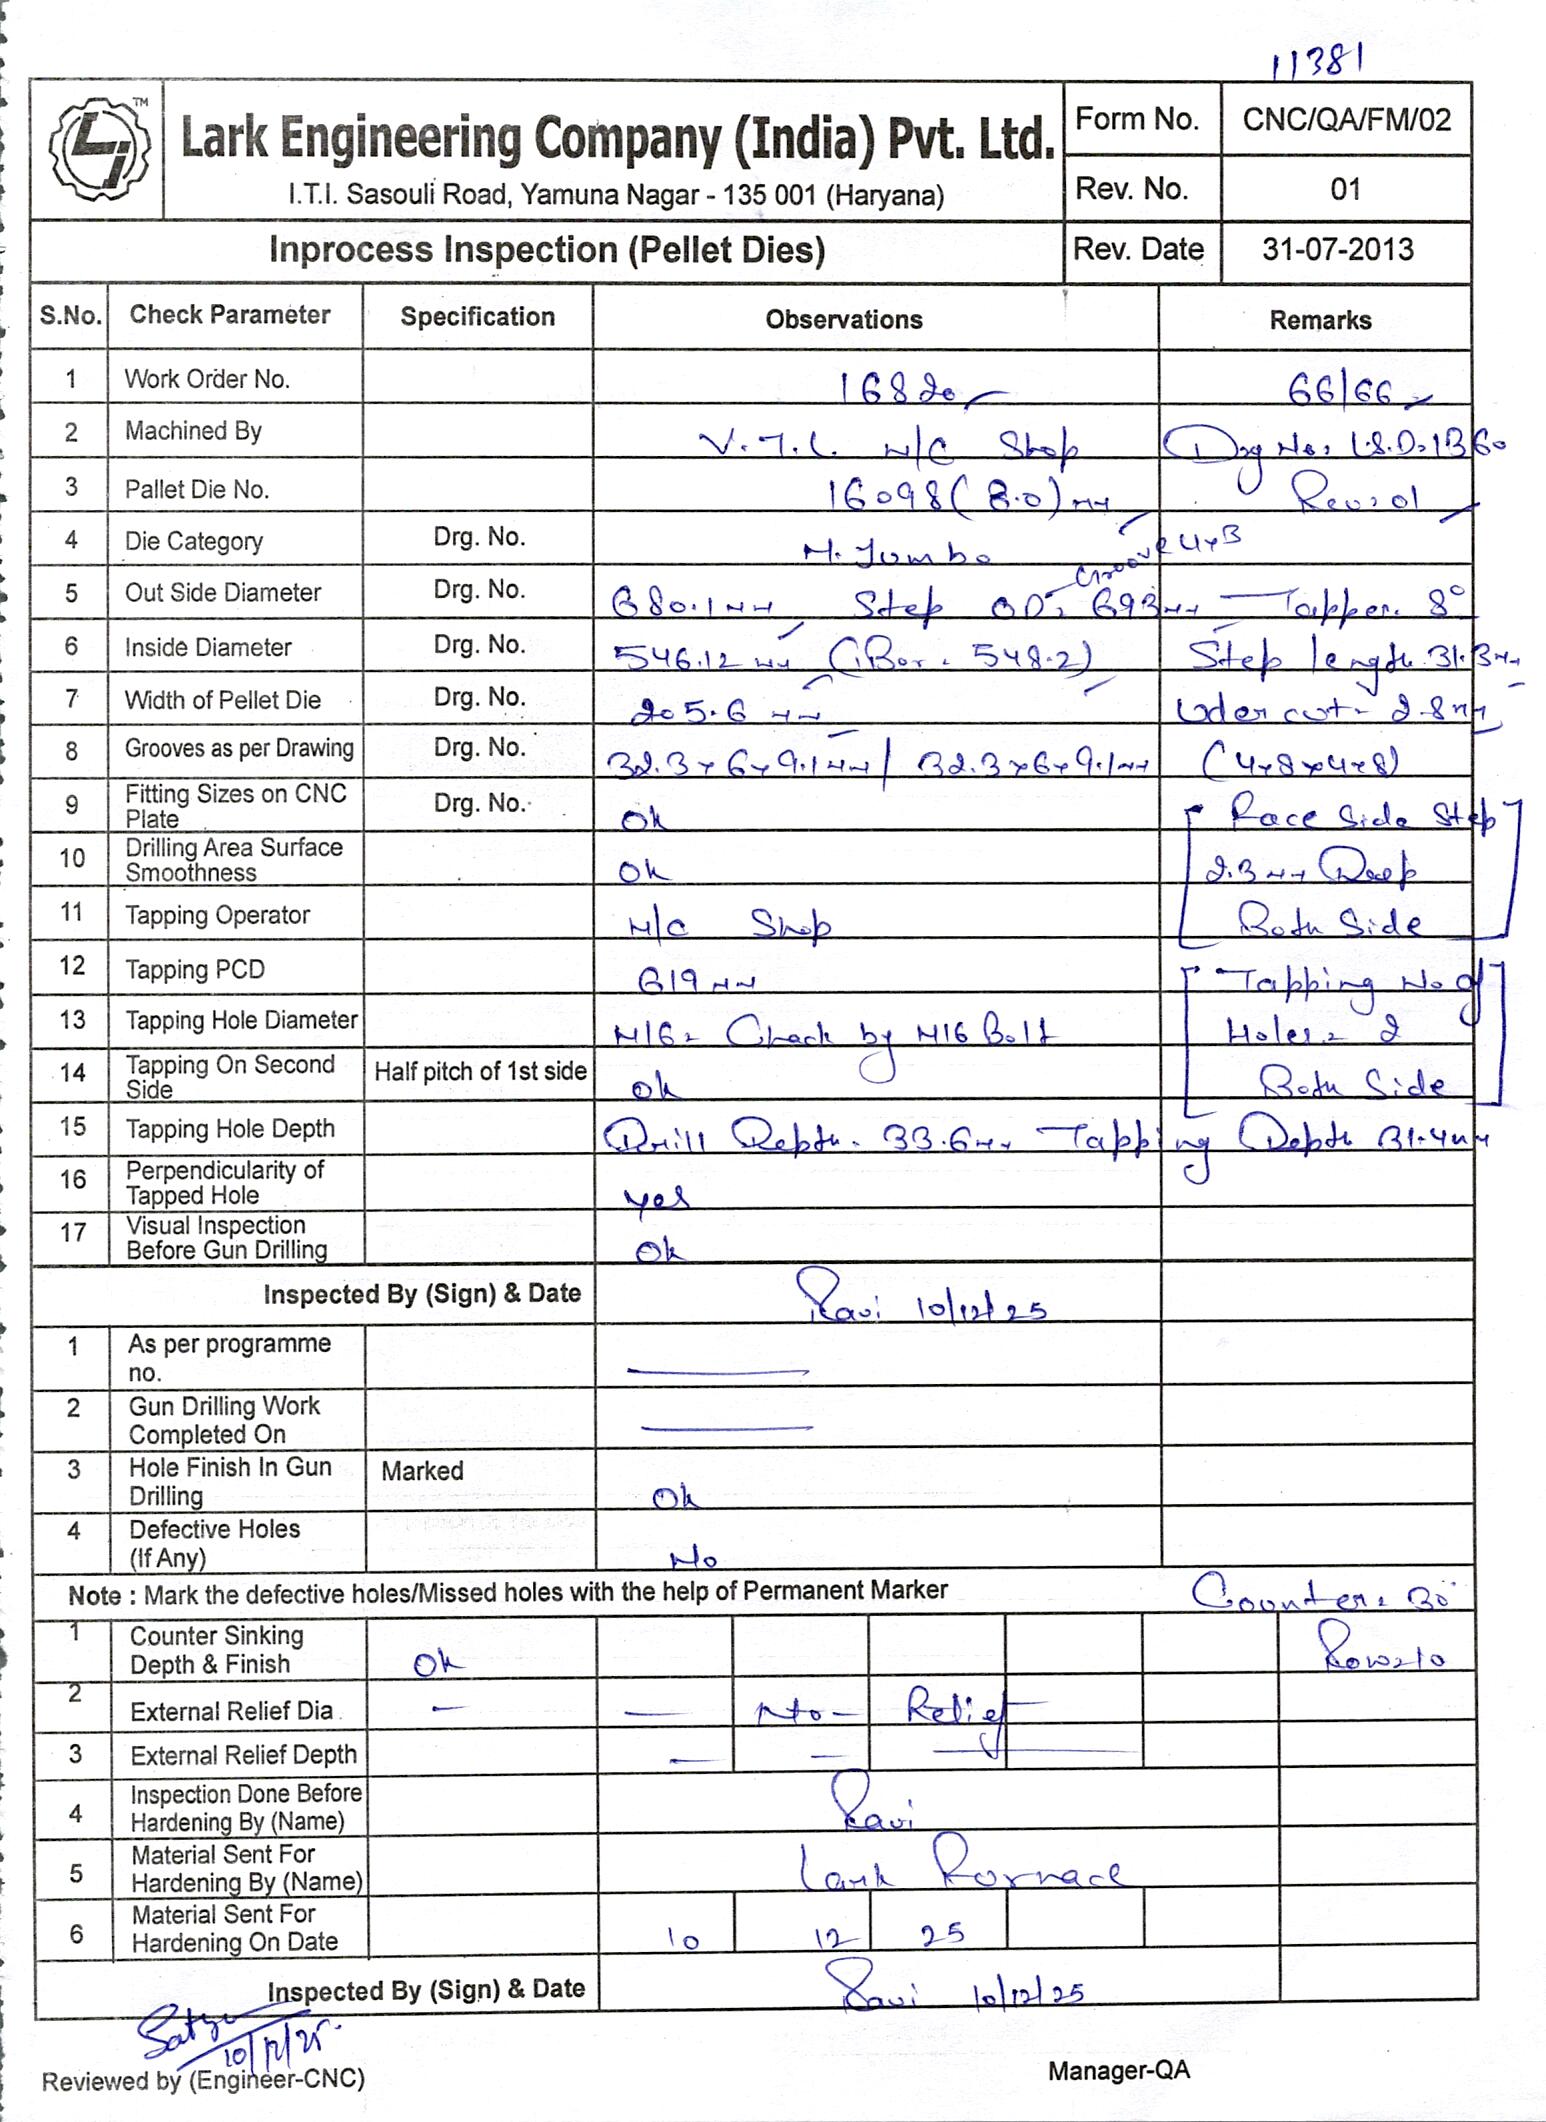 11381
TM
Lark Engineering Company (India) Pvt. Ltd.
I.T.I. Sasouli Road, Yamuna Nagar - 135 001 (Haryana)
Form No. CNC/QA/FM/02
Rev. No. 01
Inprocess Inspection (Pellet Dies) Rev. Date 31-07-2013
S.No. Check Parameter Specification Observations Remarks
1 Work Order No. 16820 66/66
2 Machined By V.T.L M/C Shop Drg No: L.S.D.1360
3 Pallet Die No. 16098 (8.0) mm Rev:01
4 Die Category Drg. No. M. Jumbo Groove 4x3
5 Out Side Diameter Drg. No. 680.1mm Step OD: 693mm Tapper. 8°
6 Inside Diameter Drg. No. 546.12 mm (Bor. 548.2) Step length 31.3mm
7 Width of Pellet Die Drg. No. 205.6 mm Uder cut - 2.8mm
8 Grooves as per Drawing Drg. No. 32.3x6x9.1mm/ 32.3x6x9.1mm (4x8x4x8)
9 Fitting Sizes on CNC Plate Drg. No. Ok Race Side Step
10 Drilling Area Surface Smoothness Ok 2.3mm Deep
11 Tapping Operator M/C Shop Both Side
12 Tapping PCD 619mm Tapping No of
13 Tapping Hole Diameter M16 - Check by M16 Bolt Holes = 2
14 Tapping On Second Side Half pitch of 1st side Ok Both Side
15 Tapping Hole Depth Drill Depth. 33.6mm Tapping Depth 31.4mm
16 Perpendicularity of Tapped Hole yes
17 Visual Inspection Before Gun Drilling Ok
Inspected By (Sign) & Date Ravi 10/12/25
1 As per programme no.
2 Gun Drilling Work Completed On
3 Hole Finish In Gun Drilling Marked Ok
4 Defective Holes (If Any) No
Note : Mark the defective holes/Missed holes with the help of Permanent Marker Counter = 30°
1 Counter Sinking Depth & Finish Ok Row=10
2 External Relief Dia — — No — Relief
3 External Relief Depth — —
4 Inspection Done Before Hardening By (Name) Ravi
5 Material Sent For Hardening By (Name) Lark Fornace
6 Material Sent For Hardening On Date 10 12 25
Inspected By (Sign) & Date Ravi 10/12/25
10/12/25.
Reviewed by (Engineer-CNC) Manager-QA